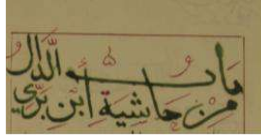 باب الذال
من حاشية ابن بري